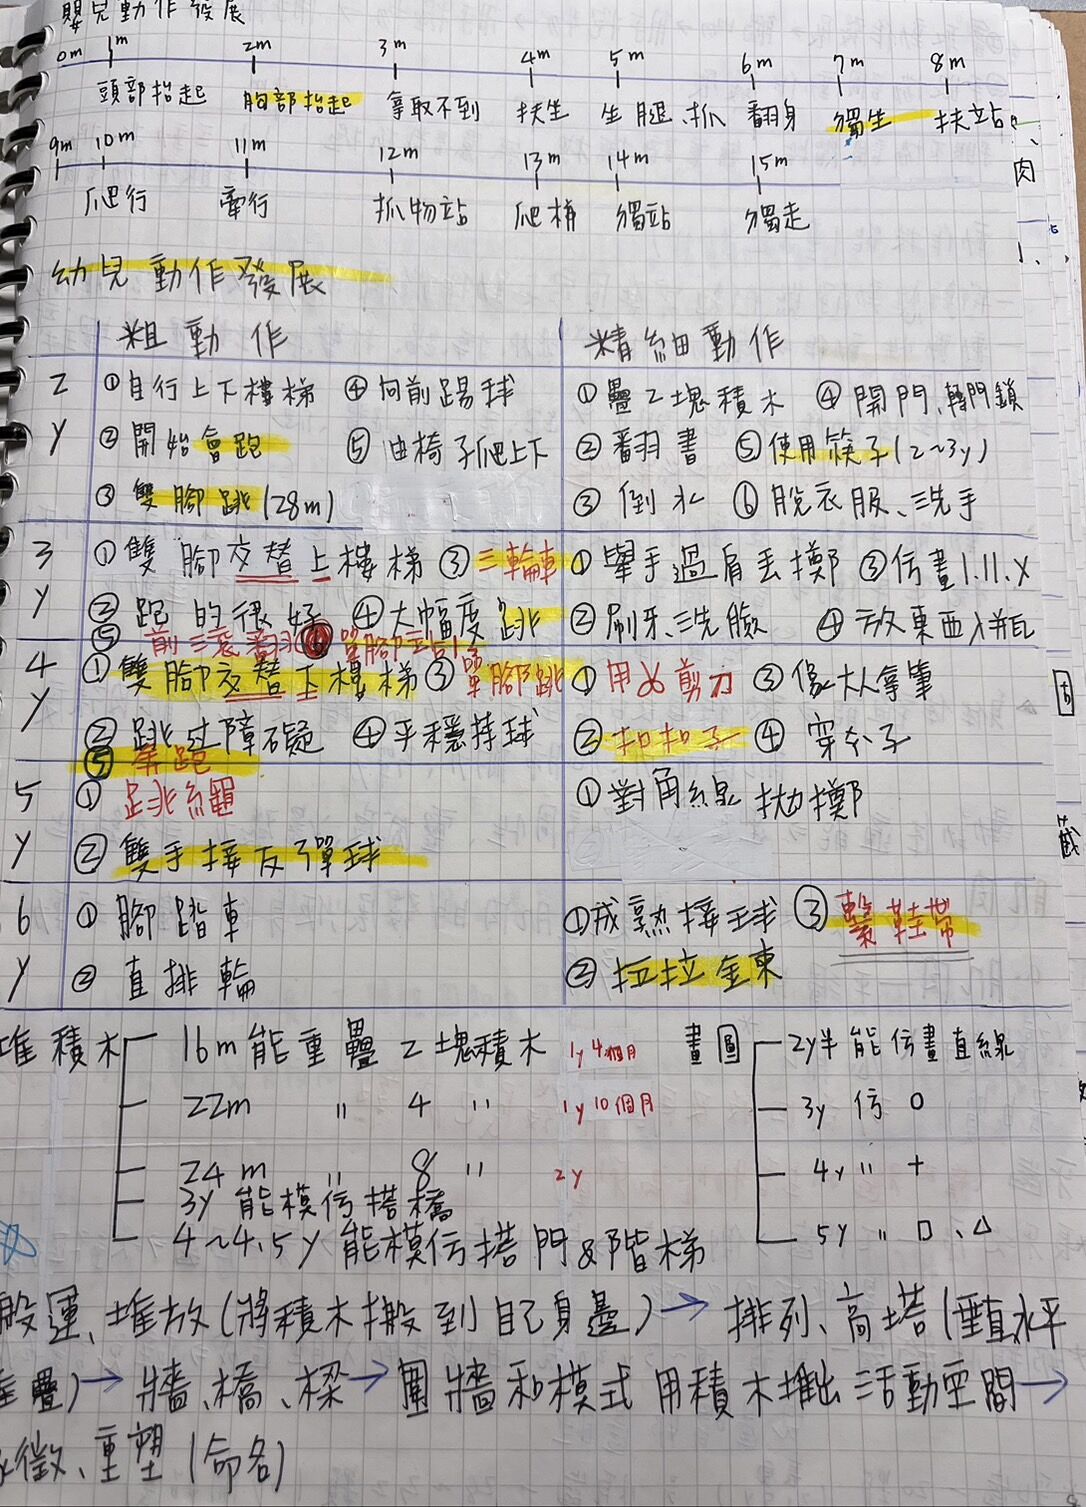 嬰兒動作發展
0m 1m 2m 3m 4m 5m 6m 7m 8m
頭部抬起 胸部抬起 拿取不到 扶坐 坐腿、抓 翻身 獨坐 扶站
9m 10m 11m 12m 13m 14m 15m
爬行 牽行 抓物站 爬梯 獨站 獨走
幼兒動作發展
粗動作 精細動作
2y
①自行上下樓梯 ④向前踢球
②開始會跑 ⑤由椅子爬上下
③雙腳跳(28m)
①疊2塊積木 ④開門、轉門鎖
②翻書 ⑤使用筷子(2~3y)
③倒水 ⑥脫衣服、洗手
3y
①雙腳交替上樓梯 ③三輪車
②跑的很好 ④大幅度跳
⑤前滾翻 ⑥單腳站1s
①舉手過肩丟擲 ③仿畫1.11.X
②刷牙、洗臉 ④放東西入瓶
4y
①雙腳交替下樓梯 ③單腳跳
②跳过障礙 ④平穩持球
⑤奔跑
①用 剪刀 ③像大人拿筆
②扣扣子 ④穿衣子
5y
①跳繩
②雙手接反彈球
①對角線拋擲
6y
①腳踏車
②直排輪
①成熟接球 ③繫鞋帶
②拉拉金束
堆積木 16m能重疊2塊積木 1y4個月
22m 〃 4 〃 1y10個月
24m 〃 8 〃 2y
3y能模仿搭橋
4~4.5y能模仿搭門&階梯
畫圖 2y半能仿畫直線
3y 仿 O
4y 〃 +
5y 〃 □、△
搬運、堆放(將積木搬到自己身邊)→排列、高塔(垂直水平
疊)→牆、橋、樑→圍牆和模式 用積木推出活動空間→
徵、重塑(命名)
肉